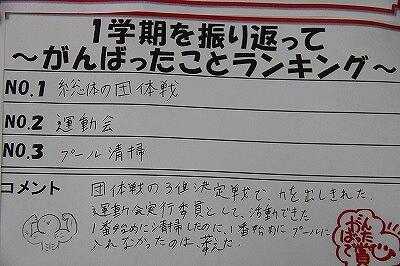 1学期を振り返って
〜がんばったことランキング〜
NO.1 総体の団体戦
NO.2 運動会
NO.3 プール清掃
コメント
団体戦の3位決定戦で、力を出しきれた。
運動会実行委員として、活動できた
1番始めに清掃したのに、1番始めにプールに
入れなかったのは、萎えた。
がんばったで賞